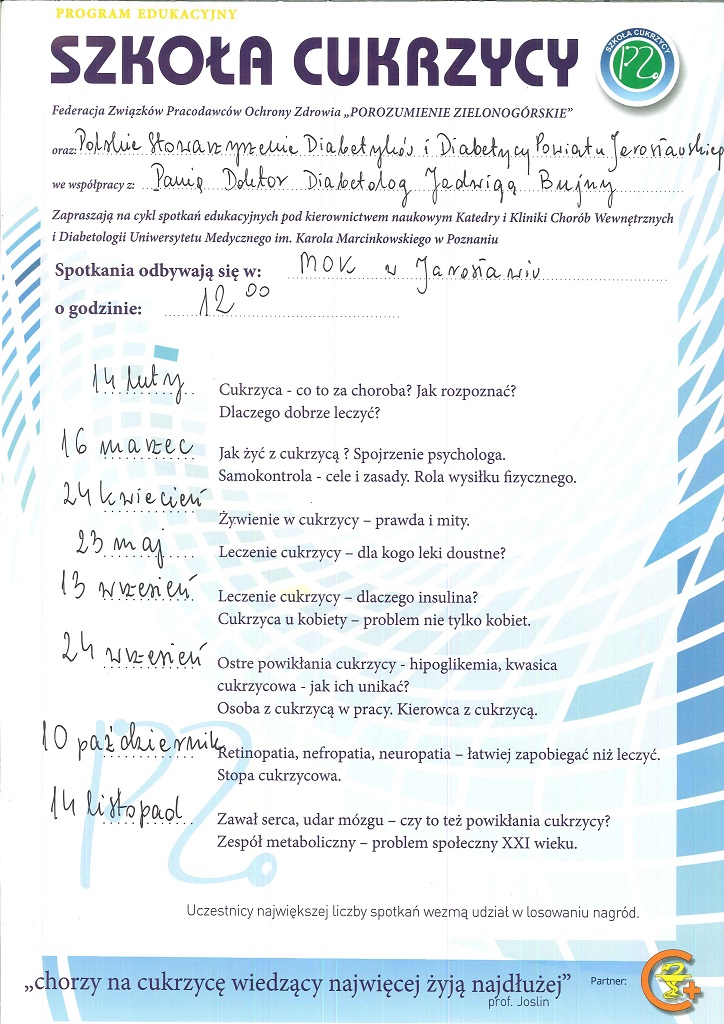 PROGRAM EDUKACYJNY
SZKOŁA CUKRZYCY
SZKOŁA CUKRZYCY
PZ.
Federacja Związków Pracodawców Ochrony Zdrowia „POROZUMIENIE ZIELONOGÓRSKIE”
oraz: Polskie Stowarzyszenie Diabetyków i Diabetycy Powiatu Jarosławskiego
we współpracy z: Panią Doktor Diabetolog Jadwigą Bujny
Zapraszają na cykl spotkań edukacyjnych pod kierownictwem naukowym Katedry i Kliniki Chorób Wewnętrznych
i Diabetologii Uniwersytetu Medycznego im. Karola Marcinkowskiego w Poznaniu
Spotkania odbywają się w: MOK w Jarosławiu
o godzinie: 12 00
14 luty Cukrzyca - co to za choroba? Jak rozpoznać?
Dlaczego dobrze leczyć?
16 marzec Jak żyć z cukrzycą ? Spojrzenie psychologa.
Samokontrola - cele i zasady. Rola wysiłku fizycznego.
24 kwiecień Żywienie w cukrzycy – prawda i mity.
23 maj Leczenie cukrzycy – dla kogo leki doustne?
13 wrzesień Leczenie cukrzycy – dlaczego insulina?
Cukrzyca u kobiety – problem nie tylko kobiet.
24 wrzesień Ostre powikłania cukrzycy - hipoglikemia, kwasica
cukrzycowa - jak ich unikać?
Osoba z cukrzycą w pracy. Kierowca z cukrzycą.
10 październik Retinopatia, nefropatia, neuropatia – łatwiej zapobiegać niż leczyć.
Stopa cukrzycowa.
14 listopad Zawał serca, udar mózgu – czy to też powikłania cukrzycy?
Zespół metaboliczny – problem społeczny XXI wieku.
PZ.
Uczestnicy największej liczby spotkań wezmą udział w losowaniu nagród.
„chorzy na cukrzycę wiedzący najwięcej żyją najdłużej”
prof. Joslin
Partner: